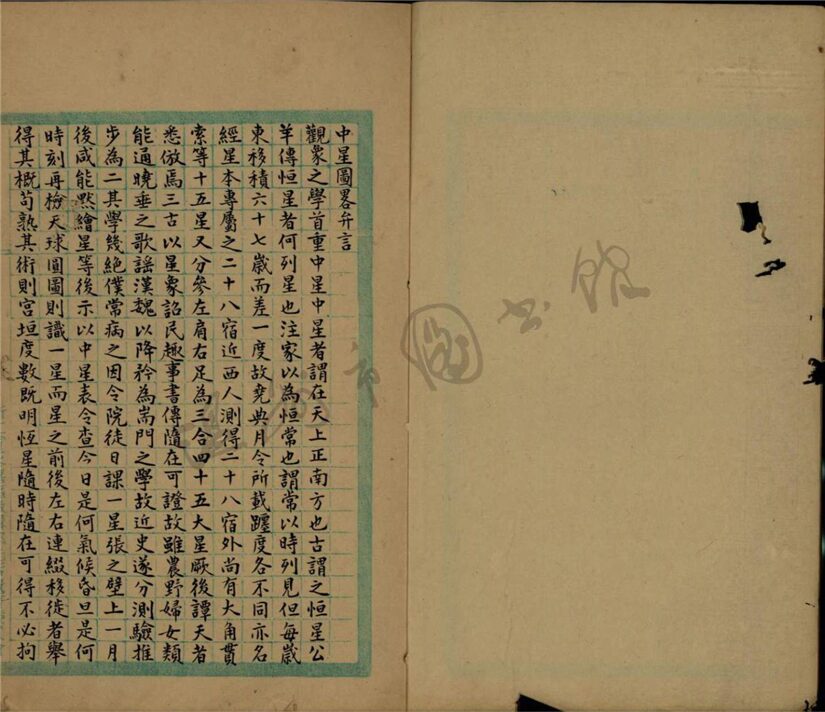 中星圖畧弁言
觀象之學首重中星中星者謂在天上正南方也古謂之恒星公
羊傳恒星者何列星也注家以為恒常也謂常以時列見但每歲
東移積六十七歲而差一度故堯典月令所載躔度各不同亦名
經星本專屬之二十八宿近西人測得二十八宿外尚有大角貫
索等十五星又分參左肩右足為三合四十五大星厥後譚天者
悉倣焉三古以星象詔民趣事書傳隨在可證故雖農野婦女類
能通曉垂之歌謠漢魏以降矜為耑門之學故近史遂分測驗推
步為二其學幾絕僕常病之因令院徒日課一星張之壁上一月
後咸能㸃繪星等後示以中星表令查今日是何氣候昏旦是何
時刻再檢天球圓圖則識一星而星之前後左右連綴移徙者舉
得其概苟熟其術則宮垣度數既明恆星隨時隨在可得不必拘
市圖书館